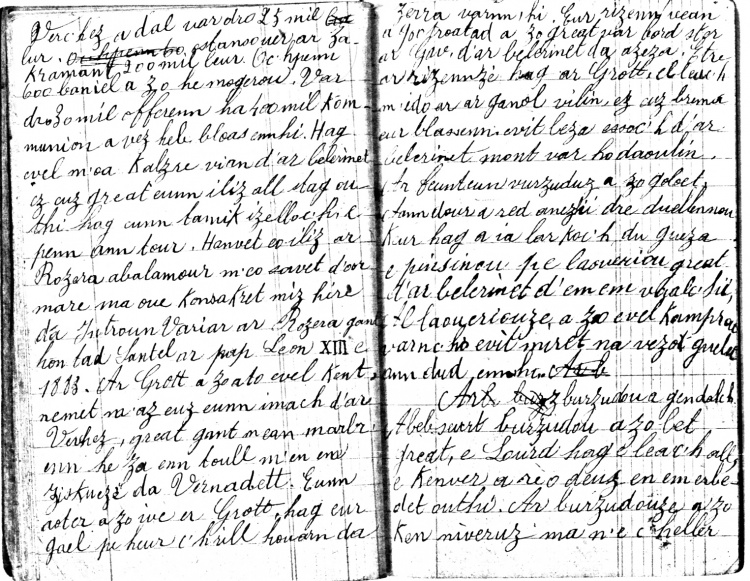 Verc'hez a dal var dro 25 mil
lur. ostansouer ar Za-
kramant 200 mil leur. Oc'hpenn
600 baniel a zo he mogerou. Var
dro 30 mil offerenn ha 400 mil Kom-
munion a vez heb bloas ennhi. Hag
evel m'oa Kalzre vian d'ar belerinet
ez euz great eunn iliz all stag ou-
thi hag eunn tamik izelloc'h e
penn ann tour. Hanvet eo iliz ar
Rozera abalamour m'eo savet d'or
mare ma oue Konsakret miz hire
da Introun Varia ar Rozera gant
hon tad Santel ar pap Leon XIII e
1883. Ar Grott a zo ato evel Kent
nemet ma'z euz eunn imach d'ar
Verhez, great gant mean marbr
enn he za enn toull m'en em
ziskueze da Vernadett. Eunn
aoter a zo ive er Grott, hag eur
gael pe heur c'hrill houarn da
zerra varnn,hi. Eur rizenn vean
a zo great var bord ster
ar Gav, d'ar belerinet da azeza. Etre
ar rizennze hag ar Grott, el leac'h
m'edo ar ar ganol vilin, ez euz brema
eur blassenn evit leza d'ar
belerinet mont var ho daoulin.
Ar feunteun vurzuduz a zo goloet,
ann dour a red anezhi dre duellennou
Kuer hag a ia bar
e pinsinou pe laoueriou great
d'ar belerinet d'em em
Al laoueriouze, a zo evel Kamprou
varn ho evit miret na vezot guelet
ann dud enn ho.
Ar burzudou a gendalc'h
A bep seurt burzudou a zo bet
great, e Lourd hag e leac'h all,
e Kenver a re o deuz en em erbe-
det outhi. Ar burzudouze a zo
Ken niveruz ma n'e c'heller